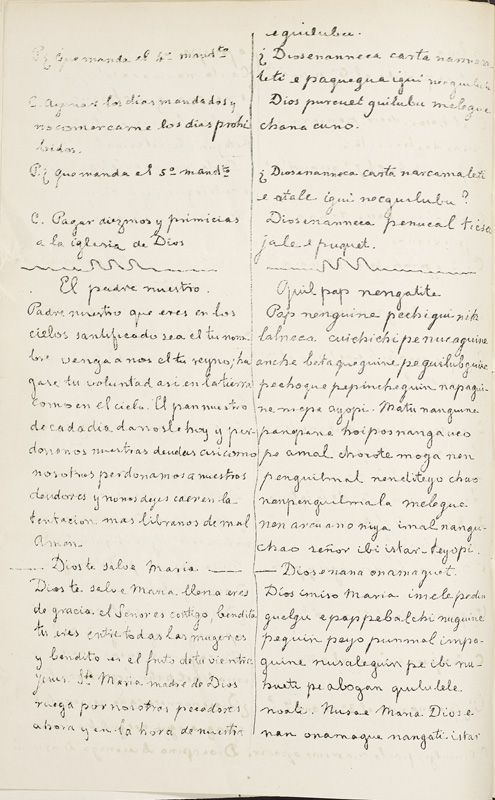 P. ¿ que manda el 4º mandto
C. Ayunar los dias mandados y
no comer carne los dias prohi
bidos.
P. ¿ que manda el 5º mandto
C. Pagar diezmos y primicias
a la iglesia de Dios
El padre nuestro.
Padre nuestro que eres en los
cielos santificado sea el tu nom
bre venga a nos el tu reyno; ha
gase tu voluntad asi en la tierra
como en el cielo. El pan nuestro
de cada dia danosle hoy y per-
donanos nuestras deudas asi como
nosotros perdonamos a nuestros
deudores y no nos dejes caer en la
tentacion mas libranos de mal
Amen.
Dios te salve Maria
Dios te salve Maria llena eres
de gracia. el Señor es contigo, bendita
tu eres entre todas las mugeres
y bendito es el fruto de tu vientre
Jesus. Sta Maria madre de Dios
ruega por nosotros pecadores
ahora y en la hora de nuestra
equilubu.
¿ Diosenanneca carta
leti e paquegua igui
Dios purcuet quilubu melegue
chana cuno.
¿ Diosenanneca carta narcamaleti
e otale igui necquilubu ?
Diosenanneca penucal
jale e puquet.
Quil pap nengatite
Pap nenguine pechigui nik
lalneca cuichichi penucaguine
anche betaqueguine pequilubguic
pechogue pepincheguin napagui
ne niepa ayopi. Matu nanguine
panepane hoiposnangaueo
pe amal chorote moga nen
penguilmal nenditeyo chao
nanpenguilmala melegue
nen arcuano niya imal nangui
chao señor ibi istar-leyopi.
Diosenana onamaquet.
Dios cmiso Maria imelepedia
guelgu e pap pebalchi nuguine
peguin payo punmal impa-
guine nusaleguin pe ibi nu-
hueti pe abogan quiludele.
noali. Nusae Maria Diose
nan onamaque nangati. istar